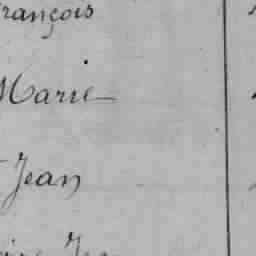 François
Marie
Jean